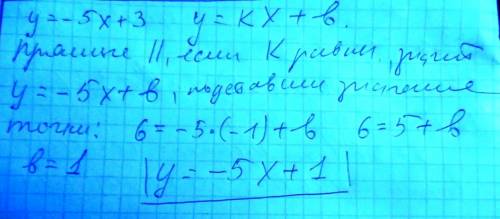 y = -5x+3   y = kx + b.
Прямые ||, если К равны, значит
y = -5x + b, подставим значение
точки: 6 = -5·(-1)+b   6 = 5+b
b = 1   |y = -5x+1|